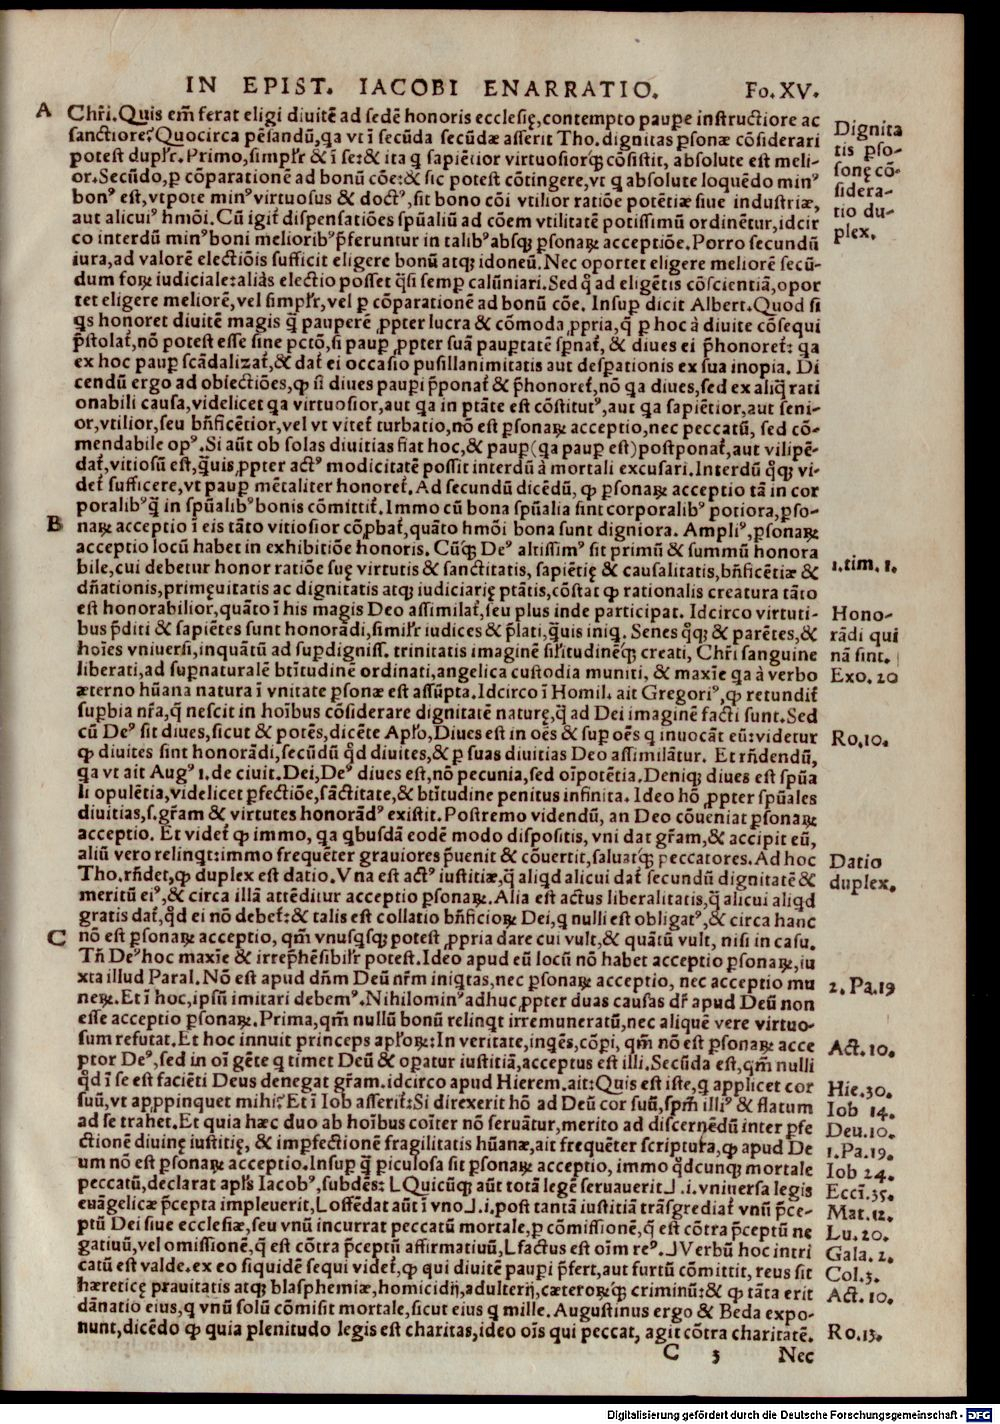 IN EPIST. IACOBI ENARRATIO. Fo. XV.
A Chr̃i. Quis em̃ ferat eligi diuitē ad sedē honoris ecclesię, contempto paupe instructiore ac
sanctiore? Quocirca pēsandū, qa vt ī secūda secūdæ asserit Tho. dignitas ꝑsonæ cōsiderari
potest duplr̃. Primo, simplr̃ & ī se: & ita q sapiētior virtuosiorqꝫ cōsistit, absolute est meli-
or. Secūdo, ꝑ cōparationē ad bonū cōe: & sic potest cōtingere, vt q absolute loquēdo minꝰ
bonꝰ est, vtpote minꝰ virtuosus & doctꝰ, sit bono cōi vtilior ratiōe potētiæ siue industriæ,
aut alicuiꝰ hmōi. Cū igit̃ dispensatiōes spūaliū ad cōem vtilitatē potissimū ordinētur, idcir
co interdū minꝰ boni melioribꝰ p̃feruntur in talibꝰ absqꝫ ꝑsonaꝝ acceptiōe. Porro secundū
iura, ad valorē electiōis sufficit eligere bonū atqꝫ idoneū. Nec oportet eligere meliorē secū-
dum foꝝ iudiciale: aliàs electio posset q̃si semꝑ calūniari. Sed q̃ ad eligētis cōscientiā, opor
tet eligere meliorē, vel simplr̃, vel ꝑ cōparationē ad bonū cōe. Insuꝑ dicit Albert. Quod si
qs honoret diuitē magis q̃ pauperē ꝓpter lucra & cōmoda ꝓpria, q̃ ꝑ hoc à diuite cōsequi
p̃stolat̃, nō potest esse sine pctō, si pauꝑ ꝓpter suā pauꝑtatē sꝑnat̃, & diues ei p̃honoret̃: qa
ex hoc pauꝑ scādalizat̃, & dat̃ ei occasio pusillanimitatis aut desꝑationis ex sua inopia. Di
cendū ergo ad obiectiōes, ꝙ si diues pauꝑi p̃ponat̃ & p̃honoret̃, nō qa diues, sed ex aliq̃ rati
onabili causa, videlicet qa virtuosior, aut qa in ptāte est cōstitutꝰ, aut qa sapiētior, aut seni-
or, vtilior, seu bñficētior, vel vt vitet̃ turbatio, nō est ꝑsonaꝝ acceptio, nec peccatū, sed cō-
mendabile opꝰ. Si aūt ob solas diuitias fiat hoc, & pauꝑ (qa pauꝑ est) postponat̃, aut vilipē-
dat̃, vitiosū est, q̃uis ꝓpter actꝰ modicitatē possit interdū à mortali excusari. Interdū q̃qꝫ vi-
det̃ sufficere, vt pauꝑ mētaliter honoret̃. Ad secundū dicēdū, ꝙ ꝑsonaꝝ acceptio tā in cor
poralibꝰ q̃ in spūalibꝰ bonis cōmittit̃. Immo cū bona spūalia sint corporalibꝰ potiora, ꝑso-
B naꝝ acceptio ī eis tāto vitiosior cōꝓbat̃, quāto hmōi bona sunt digniora. Ampliꝰ, ꝑsonaꝝ
acceptio locū habet in exhibitiōe honoris. Cūqꝫ Deꝰ altissimꝰ sit primū & summū honora
bile, cui debetur honor ratiōe suę virtutis & sanctitatis, sapiētię & causalitatis, bñficētiæ &
dñationis, primęuitatis ac dignitatis atqꝫ iudiciarię ptātis, cōstat ꝙ rationalis creatura tāto
est honorabilior, quāto ī his magis Deo assimilat̃, seu plus inde participat. Idcirco virtuti-
bus p̃diti & sapiētes sunt honorādi, similr̃ iudices & p̃lati, q̃uis iniq. Senes q̃qꝫ & parētes, &
hoīes vniuersi, inquātū ad suꝑdigniss. trinitatis imaginē silr̃itudinēqꝫ creati, Chr̃i sanguine
liberati, ad suꝑnaturalē btītudinē ordinati, angelica custodia muniti, & maxīe qa à verbo
æterno hūana natura ī vnitate ꝑsonæ est assūpta. Idcirco ī Homil. ait Gregoriꝰ, ꝙ retundit̃
suꝑbia nr̃a, q̃ nescit in hoībus cōsiderare dignitatē naturę, q̃ ad Dei imaginē facti sunt. Sed
cū Deꝰ sit diues, sicut & potēs, dicēte Apl̃o, Diues est in oēs & suꝑ oēs q inuocāt eū: videtur
ꝙ diuites sint honorādi, secūdū q̃d diuites, & ꝑ suas diuitias Deo assimilātur. Et rñdendū,
qa vt ait Augꝰ 1. de ciuit. Dei, Deꝰ diues est, nō pecunia, sed oīpotētia. Deniqꝫ diues est spūa
li opulētia, videlicet ꝑfectiōe, sāctitate, & btītudine penitus infinita. Ideo hō ꝓpter spūales
diuitias, s. gr̃am & virtutes honorādꝰ existit. Postremo videndū, an Deo cōueniat ꝑsonaꝝ
acceptio. Et videt̃ ꝙ immo, qa qbusdā eodē modo dispositis, vni dat gr̃am, & accipit eū,
aliū vero relinqt: immo frequēter grauiores p̃uenit & cōuertit, saluatqꝫ peccatores. Ad hoc
Tho. rñdet, ꝙ duplex est datio. Vna est actꝰ iustitiæ, q̃ aliqd alicui dat̃ secundū dignitatē &
meritū eiꝰ, & circa illā attēditur acceptio ꝑsonaꝝ. Alia est actus liberalitatis, q̃ alicui aliqd
gratis dat̃, q̃d ei nō debet̃: & talis est collatio bñficioꝝ Dei, q nulli est obligatꝰ, & circa hanc
C nō est ꝑsonaꝝ acceptio, qm̃ vnusqsqꝫ potest ꝓpria dare cui vult, & quātū vult, nisi in casu.
Tñ Deꝰ hoc maxīe & irrep̃hēsibilr̃ potest. Ideo apud eū locū nō habet acceptio ꝑsonaꝝ, iu
xta illud Paral. Nō est apud dñm Deū nr̃m iniqtas, nec ꝑsonaꝝ acceptio, nec acceptio mu
neꝝ. Et ī hoc, ipsū imitari debemꝰ. Nihilominꝰ adhuc ꝓpter duas causas dr̃ apud Deū non
esse acceptio ꝑsonaꝝ. Prima, qm̃ nullū bonū relinqt irremuneratū, nec aliquē vere virtuo-
sum refutat. Et hoc innuit princeps apl̃oꝝ: In veritate, inqēs, cōpi, qm̃ nō est ꝑsonaꝝ acce
ptor Deꝰ, sed in oī gēte q timet Deū & oꝑatur iustitiā, acceptus est illi. Secūda est, qm̃ nulli
q̃d ī se est faciēti Deus denegat gr̃am. idcirco apud Hierem. ait: Quis est iste, q applicet cor
suū, vt apꝓpinquet mihi? Et ī Iob asserit̃: Si direxerit hō ad Deū cor suū, spm̃ illiꝰ & flatum
ad se trahet. Et quia hæc duo ab hoībus cōiter nō seruātur, merito ad discernēdū inter ꝑfe
ctionē diuinę iustitię, & imꝑfectionē fragilitatis hūanæ, ait frequēter scriptura, ꝙ apud De
um nō est ꝑsonaꝝ acceptio. Insuꝑ q̃ ꝑiculosa sit ꝑsonaꝝ acceptio, immo q̃dcunqꝫ mortale
peccatū, declarat apl̃s Iacobꝰ, subdēs: L Quicūqꝫ aūt totā legē seruauerit ⅃ .i. vniuersa legis
euāgelicæ p̃cepta impleuerit, L offēdat aūt ī vno ⅃ .i. post tantā iustitiā trāsgrediat̃ vnū p̃ce-
ptū Dei siue ecclesiæ, seu vnū incurrat peccatū mortale, ꝑ cōmissionē, q̃ est cōtra p̃ceptū ne
gatiuū, vel omissionē, q̃ est cōtra p̃ceptū affirmatiuū, L factus est oīm reꝰ. ⅃ Verbū hoc intri
catū est valde. ex eo siquidē sequi videt̃, ꝙ qui diuitē pauꝑi p̃fert, aut furtū cōmittit, reus sit
hæreticę prauitatis atqꝫ blasphemiæ, homicidij, adulterij, cæteroꝝqꝫ criminū: & ꝙ tāta erit
dānatio eius, q vnū solū cōmisit mortale, sicut eius q mille. Augustinus ergo & Beda expo-
nunt, dicēdo ꝙ quia plenitudo legis est charitas, ideo oīs qui peccat, agit cōtra charitatē.
C 3 Nec
Dignita
tis ꝑso-
sonę cō-
sidera-
tio du-
plex.
1. tim. 1.
Hono-
rādi qui
nā sint.
Exo. 20
Ro. 10.
Datio
duplex.
2. Pa. 19
Act. 10.
Hie. 30.
Iob 14.
Deu. 10.
1. Pa. 19.
Iob 24.
Eccī. 35.
Mat. 12.
Lu. 20.
Gala. 2.
Col. 3.
Act. 10.
Ro. 13.
Digitalisierung gefördert durch die Deutsche Forschungsgemeinschaft - DFG